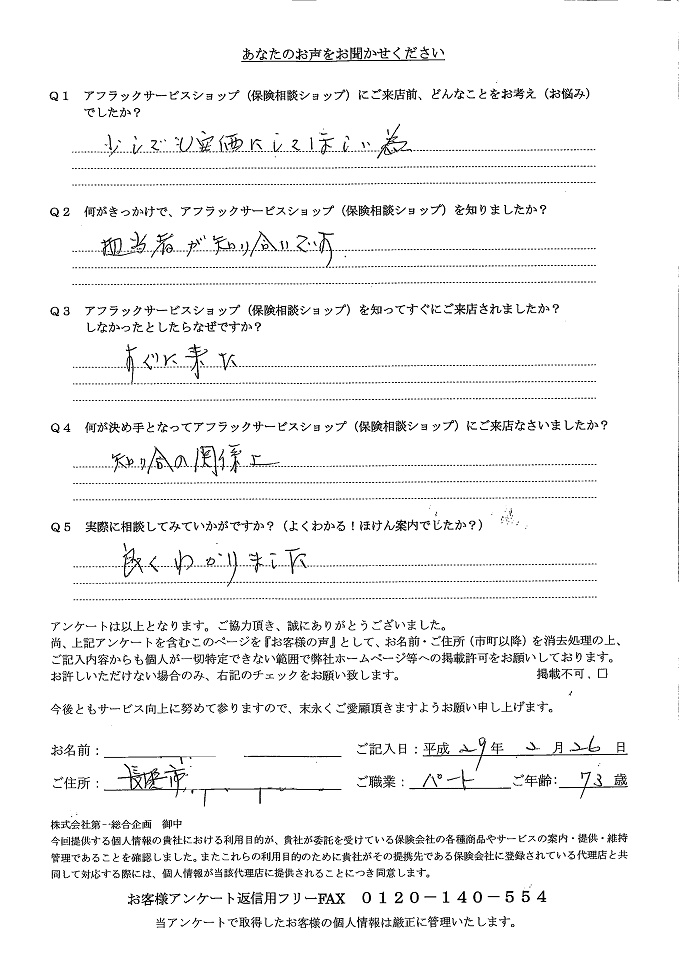 あなたのお声をお聞かせください
Q1 アフラックサービスショップ（保険相談ショップ）にご来店前、どんなことをお考え（お悩み）
でしたか？
少しでも安価にしてほしい為
Q2 何がきっかけで、アフラックサービスショップ（保険相談ショップ）を知りましたか？
担当者が知り合いです
Q3 アフラックサービスショップ（保険相談ショップ）を知ってすぐにご来店されましたか？
しなかったとしたらなぜですか？
すぐに来た
Q4 何が決め手となってアフラックサービスショップ（保険相談ショップ）にご来店なさいましたか？
知り合の関係上
Q5 実際に相談してみていかがですか？（よくわかる！ほけん案内でしたか？）
良くわかりました
アンケートは以上となります。ご協力頂き、誠にありがとうございました。
尚、上記アンケートを含むこのページを『お客様の声』として、お名前・ご住所（市町以降）を消去処理の上、
ご記入内容からも個人が一切特定できない範囲で弊社ホームページ等への掲載許可をお願いしております。
お許しいただけない場合のみ、右記のチェックをお願い致します。 掲載不可．□
今後ともサービス向上に努めて参りますので、末永くご愛顧頂きますようお願い申し上げます。
お名前： ご記入日：平成 29年 2月 26日
ご住所： 市 ご職業：パート ご年齢：73歳
株式会社第一総合企画 御中
今回提供する個人情報の貴社における利用目的が、貴社が委託を受けている保険会社の各種商品やサービスの案内・提供・維持
管理であることを確認しました。またこれらの利用目的のために貴社がその提携先である保険会社に登録されている代理店と共
同して対応する際には、個人情報が当該代理店に提供されることにつき同意します。
お客様アンケート返信用フリーFAX 0120－140－554
当アンケートで取得したお客様の個人情報は厳正に管理いたします。